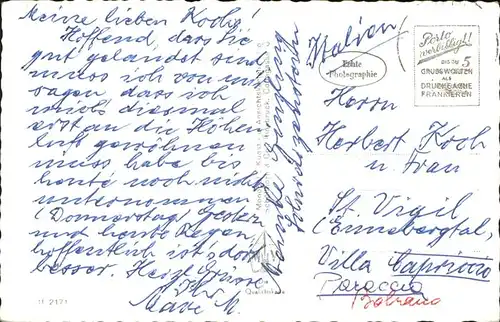 Meine lieben Kochs!
Hoffend, dass Sie
gut gelandet sind
muss ich von uns
sagen dass ich
mich diesmal
erst an die Höhen
luft gewöhnen
muss habe bis
heute noch nicht
unternommen
(Donnerstag) Gestern
und heute Regen
hoffentlich ist's dort
besser. Herzl. Grüsse
Ihr
Italien!
Echte
Photographie
Porto
verbilligt!
BIS ZU 5
GRUSSWORTEN
ALS
DRUCKSACHE
FRANKIEREN
Herrn
Herbert Koch
u. Frau
St. Vigil
(Ennebergtal)
Villa Capriccio
Paraccia
Bolzano